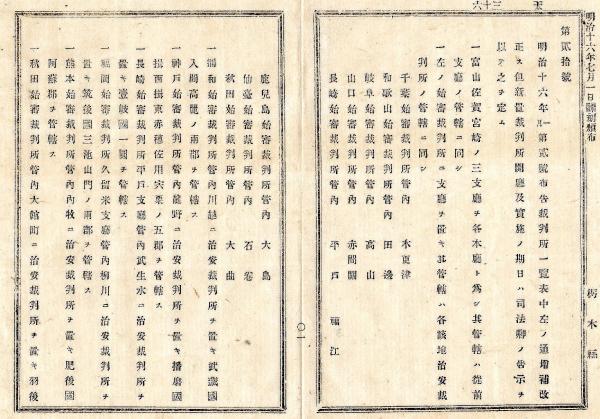 明治十六年七月一日歸劒頒布
栃木縣
王 三十六
第貳拾號
明治十六年一月第貳號布告裁判所一覽表中左ノ通增補改
正ス但新置裁判所開廳及實施ノ期日ハ司法卿ノ告示ヲ
以テ之ヲ定ム
一富山佐賀宮崎ノ三支廳ヲ各本廳ト爲シ其管轄ハ從前
支廳ノ管轄ニ同シ
一左ノ始審裁判所ニ支廳ヲ置キ其管轄ハ各該地治安裁
判所ノ管轄ニ同シ
千葉始審裁判所管內 木更津
和歌山始審裁判所管內 田邊
岐阜始審裁判所管內 高山
山口始審裁判所管內 赤間關
長崎始審裁判所管內 平戶 福江
〇一
鹿兒島始審裁判所管內 大島
仙臺始審裁判所管內 石卷
秋田始審裁判所管內 大曲
一浦和始審裁判所管內川越ニ治安裁判所ヲ置キ武藏國
入間高麗ノ兩郡ヲ管轄ス
一神戶始審裁判所管內龍野ニ治安裁判所ヲ置キ播磨國
揖西揖東赤穗佐用宍粟ノ五郡ヲ管轄ス
一長崎始審裁判所平戶支廳管內武生水ニ治安裁判所ヲ
置キ壹岐國一圓ヲ管轄ス
一福岡始審裁判所久留米支廳管內柳川ニ治安裁判所ヲ
置キ筑後國三池山門ノ兩郡ヲ管轄ス
一熊本始審裁判所管內內牧ニ治安裁判所ヲ置キ肥後國
阿蘇郡ヲ管轄ス
一秋田始審裁判所管內大館町ニ治安裁判所ヲ置キ羽後